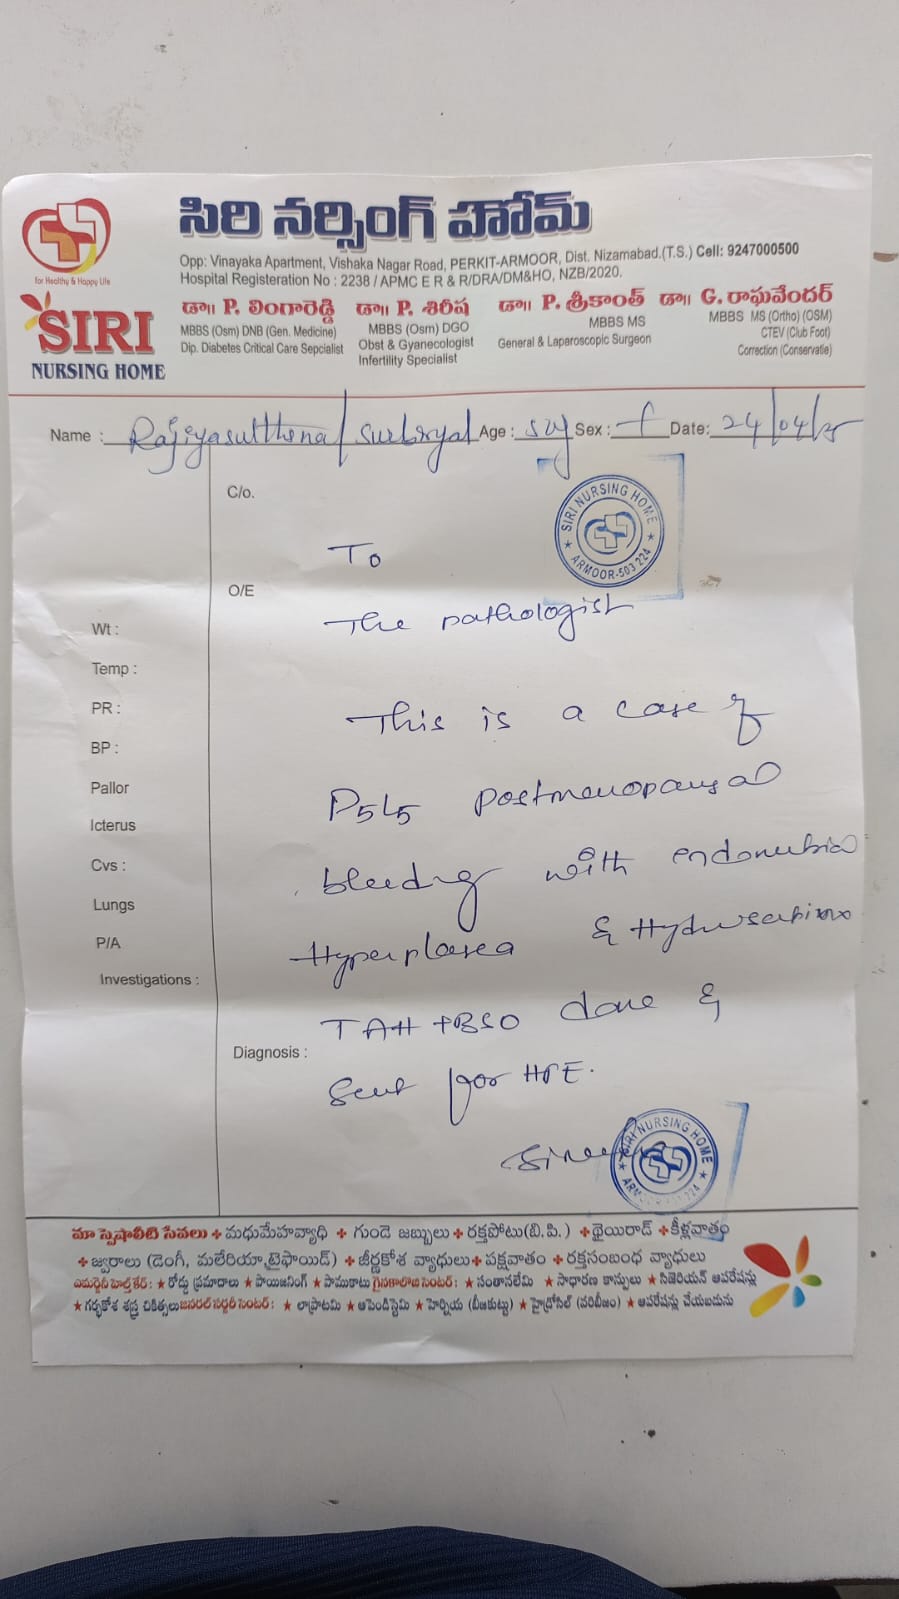 for Healthy & Happy Life
SIRI
NURSING HOME
సిరి నర్సింగ్ హోమ్
Opp: Vinayaka Apartment, Vishaka Nagar Road, PERKIT-ARMOOR, Dist. Nizamabad.(T.S.) Cell: 9247000500
Hospital Registeration No : 2238 / APMC E R & R/DRA/DM&HO, NZB/2020.
డా॥ P. లింగారెడ్డి
MBBS (Osm) DNB (Gen. Medicine)
Dip. Diabetes Critical Care Sepcialist
డా॥ P. శిరీష
MBBS (Osm) DGO
Obst & Gyanecologist
Infertility Specialist
డా॥ P. శ్రీకాంత్
MBBS MS
General & Laparoscopic Surgeon
డా॥ G. రాఘవేందర్
MBBS MS (Ortho) (OSM)
CTEV (Club Foot)
Correction (Conservatie)
Name : Rajiyasulthana / Age : Sex : f Date: 24/04/25
C/o.
SIRI NURSING HOME
ARMOOR-503 224
To
O/E
The pathologist
Wt :
Temp :
PR :
BP :
Pallor
Icterus
Cvs :
Lungs
P/A
Investigations :
This is a case of
P5L5 postmenopausal
bleeding with
& 
TAH + BSO done &
Diagnosis :
Sent for HPE.
SIRI NURSING HOME
మా స్పెషాలిటి సేవలు + మధుమేహవ్యాధి + గుండె జబ్బులు + రక్తపోటు(బి.పి.) + థైయిరాడ్ + కీళ్లవాతం
+ జ్వరాలు (డెంగీ, మలేరియా,టైఫాయిడ్) + జీర్ణకోశ వ్యాధులు + పక్షవాతం + రక్తసంబంధ వ్యాధులు
ఎమర్జెన్సీ హెల్త్ కేర్: ★ రోడ్డు ప్రమాదాలు ★ పాయిజనింగ్ ★ పాముకాటు గైనకాలజి సెంటర్: ★ సంతానలేమి ★ సాధారణ కాన్పులు ★ సిజెరియన్ ఆపరేషన్లు
★ గర్భకోశ శస్త్ర చికిత్సలు జనరల్ సర్జరీ సెంటర్: ★ లాప్రొటమి ★ అపెండిస్టెమి ★ హెర్నియ (బీజకుట్టు) ★ హైడ్రోసిల్ (వరిబీజం) ★ ఆపరేషన్లు చేయబడును